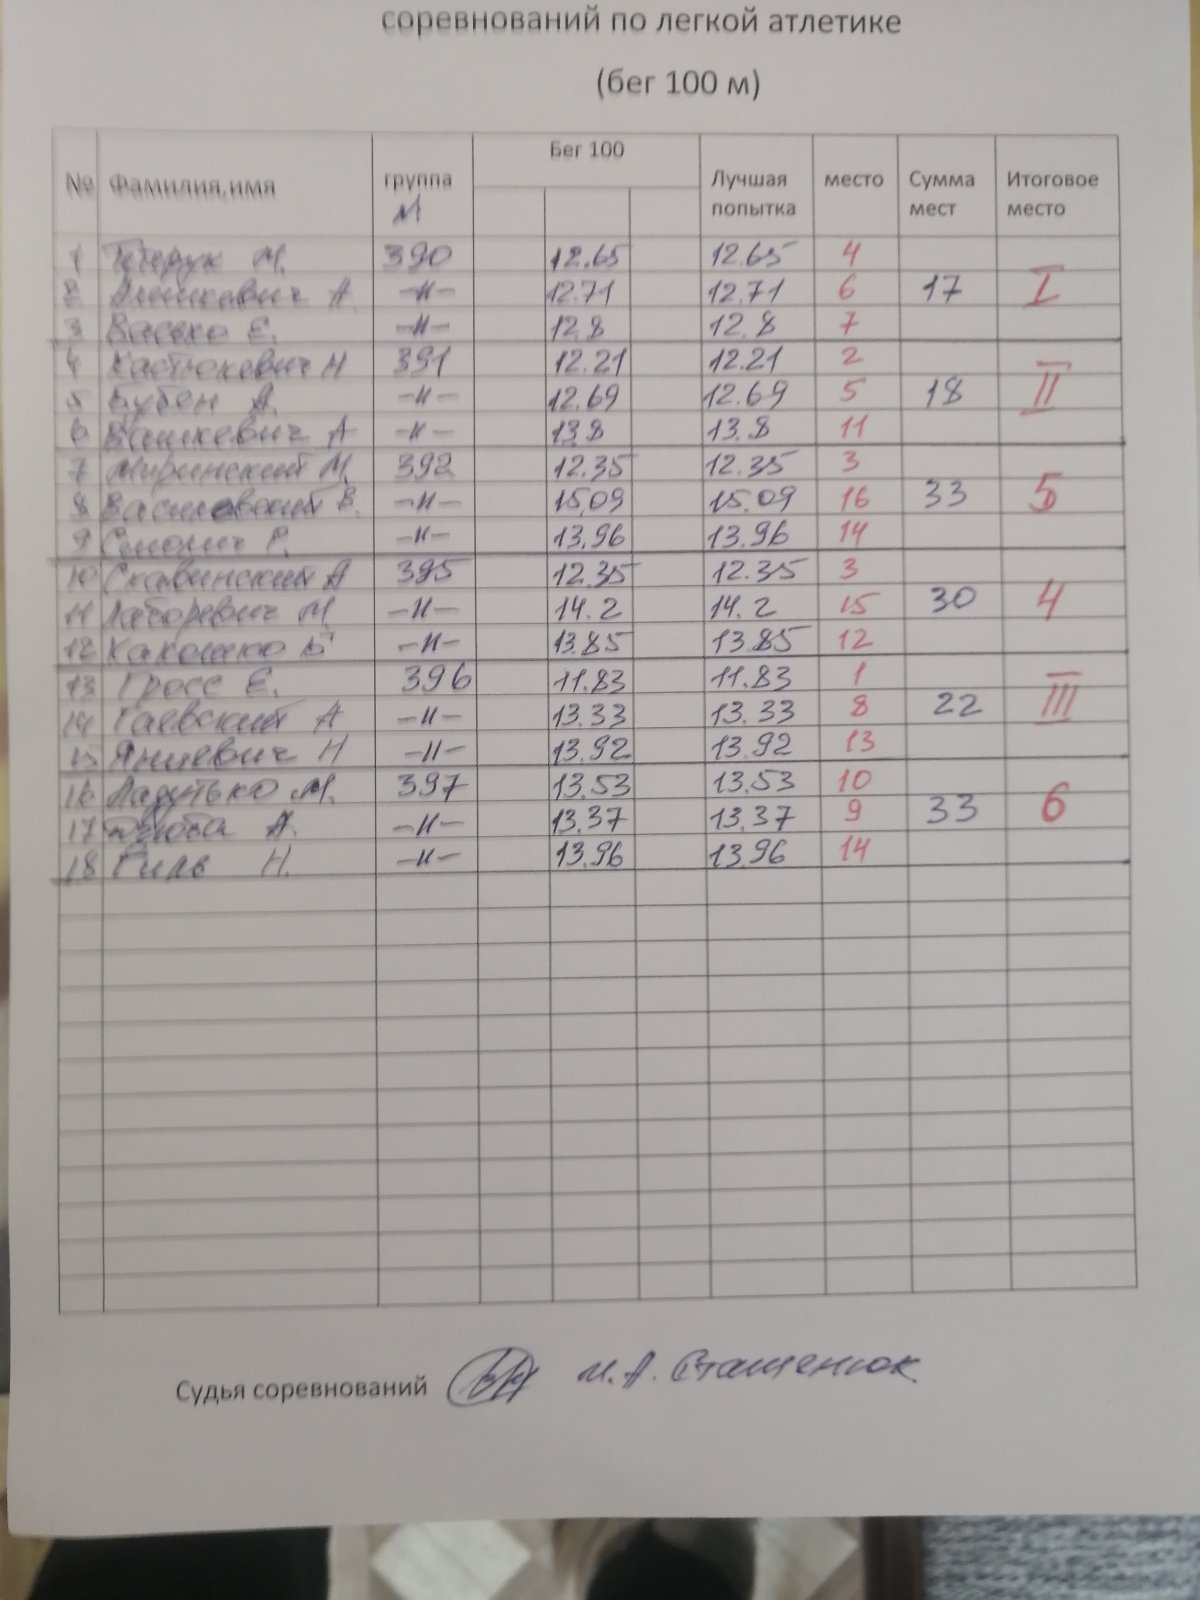 соревнований по легкой атлетике
(бег 100 м)
№ Фамилия,имя группа М Бег 100 Лучшая попытка место Сумма мест Итоговое место
1 М. 390 12.65 12.65 4
2 А. –"– 12.71 12.71 6 17 I
3 Васько Е. –"– 12.8 12.8 7
4 Костюкевич Н 391 12.21 12.21 2
5 Бубен А. –"– 12.69 12.69 5 18 II
6 Вашкевич А –"– 13.8 13.8 11
7 Миринский М. 392 12.35 12.35 3
8 Василевский В. –"– 15,09 15.09 16 33 5
9 Смолич Е. –"– 13,96 13.96 14
10 Скавинский А 395 12.35 12.35 3
11 М. –"– 14.2 14.2 15 30 4
12 –"– 13.85 13.85 12
13 Гросс Е. 396 11.83 11.83 1
14 Гаевский А –"– 13.33 13.33 8 22 III
15 Янцевич Н –"– 13.92 13.92 13
16 Ладутько М. 397 13.53 13.53 10
17 Дзюба А. –"– 13.37 13.37 9 33 6
18 Гиль Н. –"– 13.96 13.96 14
Судья соревнований М.А. Сташенюк